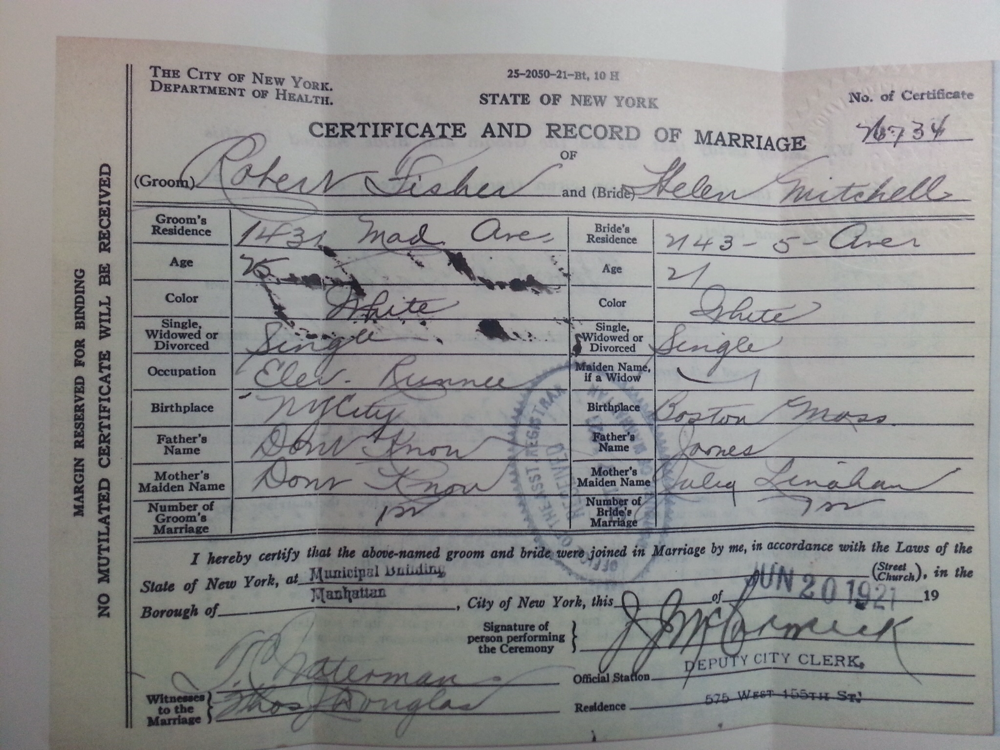 THE CITY OF NEW YORK.
DEPARTMENT OF HEALTH.
25-2050-21-Bt, 10 H
STATE OF NEW YORK
No. of Certificate
CERTIFICATE AND RECORD OF MARRIAGE
OF
(Groom) Robert Fisher and (Bride) Helen Mitchell
Groom's Residence 1431 Mad Ave Bride's Residence 2143-5-Ave
Age 25 Age 21
Color White Color White
Single, Widowed or Divorced Single Single, Widowed or Divorced Single
Occupation Elev. Runner Maiden Name, if a Widow
Birthplace NY City Birthplace Boston Mass.
Father's Name Dont Know Father's Name James
Mother's Maiden Name Dont Know Mother's Maiden Name Julia Linahan
Number of Groom's Marriage 1st Number of Bride's Marriage 1st
I hereby certify that the above-named groom and bride were joined in Marriage by me, in accordance with the Laws of the
State of New York, at Municipal Building (Street Church), in the
Borough of Manhattan, City of New York, this of JUN 20 1921 19
Signature of person performing the Ceremony J J McCormick
DEPUTY CITY CLERK,
Official Station
Witnesses to the Marriage Thos J Douglas
Residence 575 WEST 155TH ST.
MARGIN RESERVED FOR BINDING
NO MUTILATED CERTIFICATE WILL BE RECEIVED
OFFICE OF THE ASST. REGISTRAR
RECEIVED